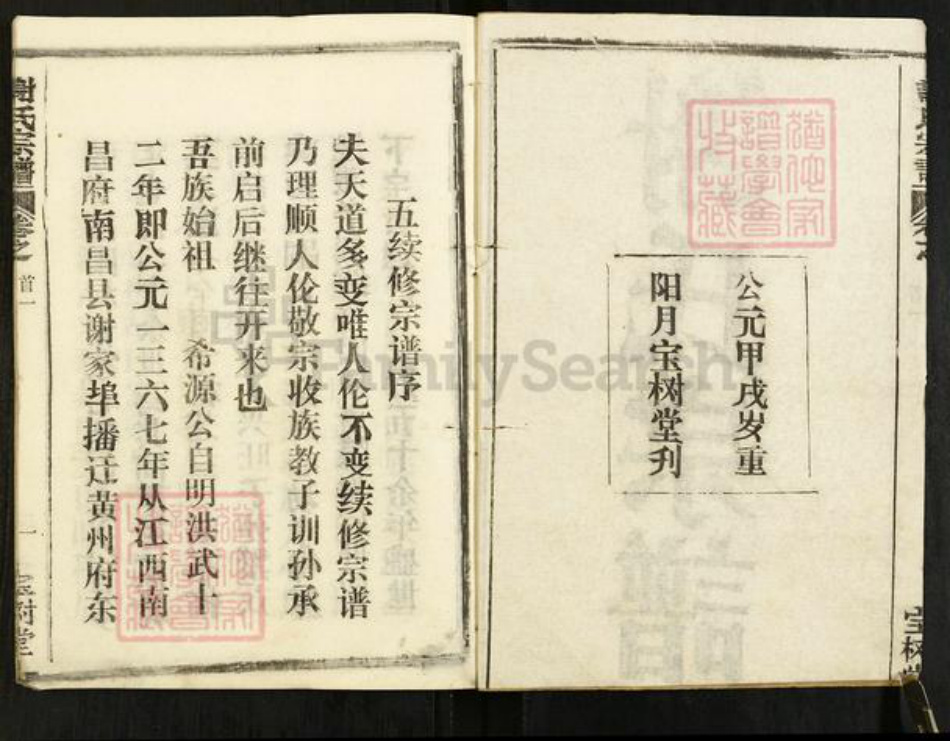 公元甲戌岁重
阳月宝树堂刋
猶他家
譜學會
收藏
五续修宗谱序
夫天道多变唯人伦不变续修宗谱
乃理顺人伦敬宗收族教子训孙承
前启后继往开来也
吾族始祖 希源公自明洪武十
二年即公元一三六七年从江西南
昌府南昌县谢家埠播迁黄州府东
謝氏宗譜 卷之 首一
一
宝树堂
FamilySearch